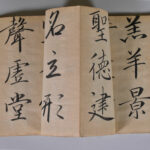 羔羊景
聖德建
名立形
聲虚堂